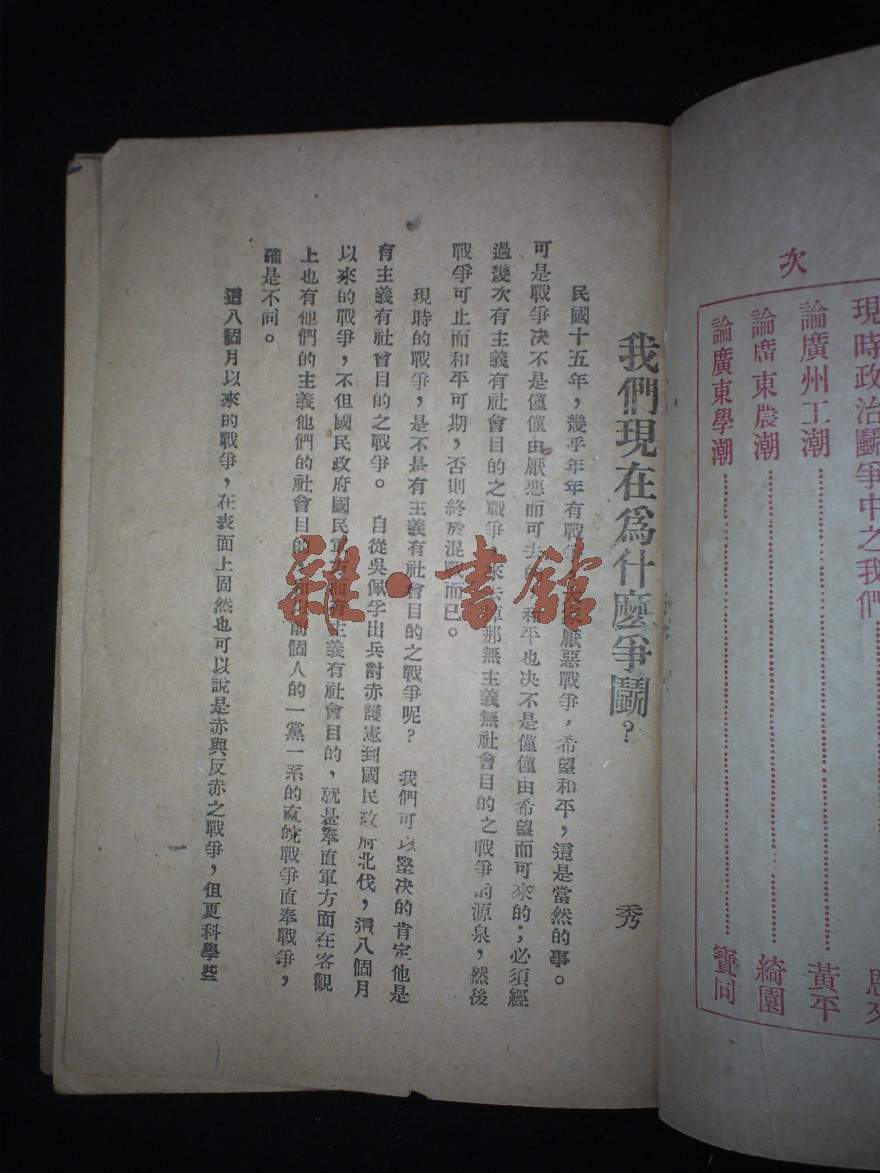 次
現時政治鬭爭中之我們
論廣州工潮 黃平
論廣東農潮 綺園
論廣東學潮
我們現在爲什麽爭鬭? 秀
民國十五年,幾乎年年有戰爭 厭惡戰爭,希望和平,這是當然的事。
可是戰爭决不是僅僅由厭惡而可去 和平也决不是僅僅由希望而可來的;必須經
過幾次有主義有社會目的之戰爭,來去掉那無主義無社會目的之戰爭的源泉,然後
戰爭可止而和平可期,否則終於混戰而已。
現時的戰爭,是不是有主義有社會目的之戰爭呢? 我們可以堅决的肯定他是
有主義有社會目的之戰爭。 自從吳佩孚出兵討赤護憲到國民政府北伐,這八個月
以來的戰爭,不但國民政府國民軍方面有主義有社會目的,就是奉直軍方面在客觀
上也有他們的主義他們的社會目的 前個人的一黨一系的直皖戰爭直奉戰爭,
確是不同。
這八個月以來的戰爭,在表面上固然也可以說是赤與反赤之戰爭,但更科學些
雜·書館